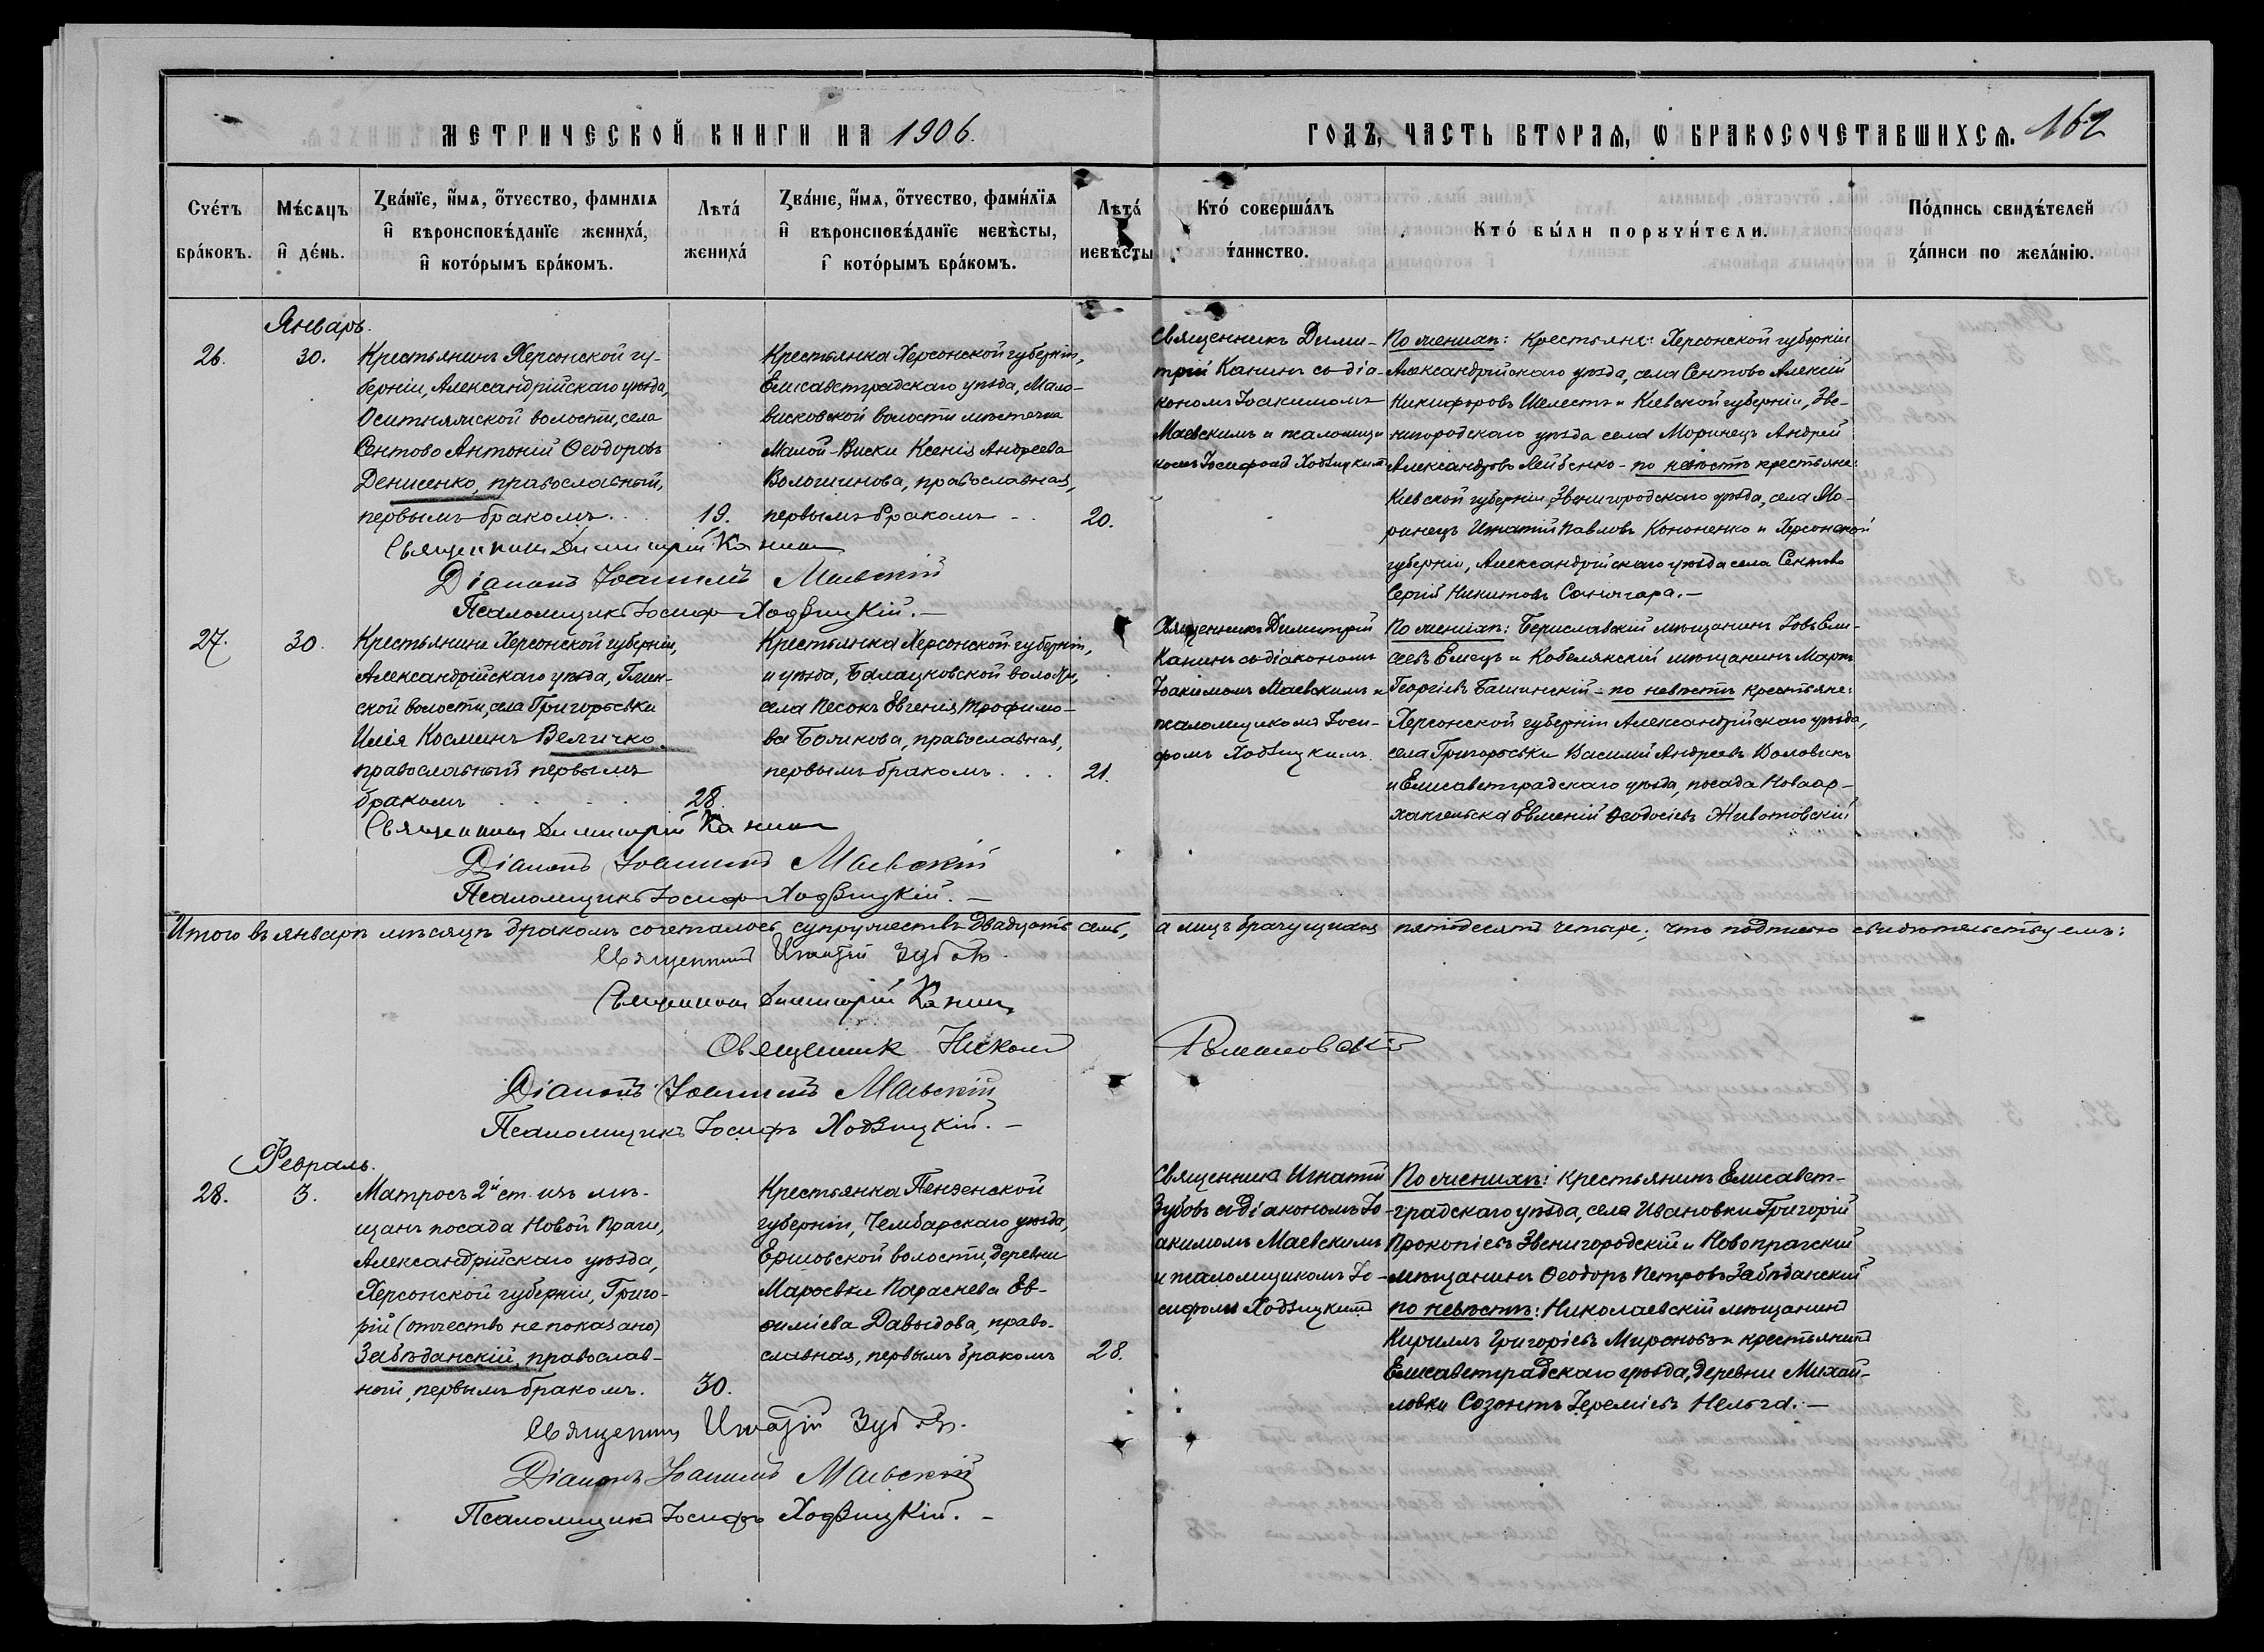 МЕТРИЧЕСКОЙ КНИГИ НА 1906.
ГОДЪ, ЧАСТЬ ВТОРАЯ, Ѡ БРАКОСОЧЕТАВШИХСѦ. 162
Счетъ браковъ.
Мѣсяцъ и день.
Званїе, имѧ, отчество, фамилїѧ
и вѣроисповѣданїе жениха,
и которымъ бракомъ.
Лѣта жениха
Званіе, имѧ, отчество, фамилїѧ
и вѣроисповѣданїе невѣсты,
и которымъ бракомъ.
Лѣта невѣсты
Кто совершалъ таинство.
Кто были поручители.
Подпись свидѣтелей
записи по желанію.
Январь.
26.
30.
Крестьянинъ Херсонской гу-
берніи, Александрійскаго уѣзда,
Оситняжской волости, села
Сентово Антоній Ѳеодоровъ
Денисенко, православный,
первымъ бракомъ.
19.
Крестьянка Херсонской губерніи,
Елисаветградскаго уѣзда, Мало-
висковской волости мѣстечка
Малой-Виски Ксенія Андреева
Волошинова, православная,
первымъ бракомъ
20.
Священникъ Дими-
трій Канинъ съ діа-
кономъ Іоакимомъ
Маевскимъ и псаломщи
комъ Іосифомъ Ходзицкимъ
По женихѣ: Крестьяне: Херсонской губерніи
Александрійскаго уѣзда, села Сентово Алексій
Никифоровъ Шелестъ и Кіевской губерніи, Зве-
нигородскаго уѣзда села Моринецъ Андрей
Александровъ Лейбенко - по невѣстѣ крестьяне:
Кіевской губерніи, Звенигородскаго уѣзда, села Мо-
ринецъ Игнатій Павловъ Кононенко и Херсонской
губерніи, Александрійскаго уѣзда села Сентово
Сергій Никитовъ Санжара.—
Священникъ Димитрій Канинъ
Діаконъ Іоакимъ Маевскій
Псаломщикъ Іосифъ Ходзицкій.—
27.
30.
Крестьянинъ Херсонской губерніи,
Александрійскаго уѣзда,
ской волости, села Григорьевки
Илія Косминъ Величко
православный первымъ
бракомъ
28.
Крестьянка Херсонской губерніи,
и уѣзда, Балацковской волости,
села Песокъ Евгенія Трофимо-
ва Божкова, православная,
первымъ бракомъ...
21.
Священникъ Димитрій
Канинъ съ діакономъ
Іоакимомъ Маевскимъ и
псаломщикомъ Іоси-
фомъ Ходзицкимъ.
По женихѣ: Бериславскій мѣщанинъ Іовъ Ели-
сеевъ Емецъ и Кобелякскій мѣщанинъ Маркъ
Георгіевъ Башинскій - по невѣстѣ крестьяне:
Херсонской губерніи Александрійскаго уѣзда,
села Григорьевки Василій Андреевъ Воловикъ
и Елисаветградскаго уѣзда, посада Новоар-
хангельска Евменій Ѳеодосіевъ Животовскій
Священникъ Димитрій Канинъ
Діаконъ Іоакимъ Маевскій
Псаломщикъ Іосифъ Ходзицкій.—
Итого въ январѣ мѣсяцѣ бракомъ сочеталось супружествъ двадцать семь, а лицъ брачущихся пятьдесятъ четыре; что подписью свидѣтельствуемъ:
Священникъ Игнатій Зубовъ.
Священникъ Димитрій Канинъ
Священник Николай
Діаконъ Іоакимъ Маевскій
Псаломщикъ Іосифъ Ходзицкій.—
Февраль.
28.
3.
Матросъ 2й ст. изъ мѣ-
щанъ посада Новой Праги,
Александрійскаго уѣзда,
Херсонской губерніи, Григо-
рій (отчество не показано)
Забѣданскій, православ-
ный, первымъ бракомъ.
30.
Крестьянка Пензенской
губерніи, Чембарскаго уѣзда,
Ершовской волости, деревни
Мараевки Параскева Ев-
ѳиміева Давыдова, право-
славная, первымъ бракомъ
28.
Священникъ Игнатій
Зубовъ съ діакономъ Іо-
акимомъ Маевскимъ
и псаломщикомъ Іо-
сифомъ Ходзицкимъ
По женихѣ: Крестьянинъ Елисавет-
градскаго уѣзда, села Ивановки Григорій
Прокопіевъ Звенигородскій и Новопражскій
мѣщанинъ Ѳеодоръ Петровъ Забѣданскій
по невѣстѣ: Николаевскій мѣщанинъ
Кириллъ Григоріевъ Мироновъ и крестьянинъ
Елисаветградскаго уѣзда, деревни Михай-
ловки Созонтъ Іереміевъ Нельга.—
Священникъ Игнатій Зубовъ.
Діаконъ Іоакимъ Маевскій
Псаломщикъ Іосифъ Ходзицкій.—